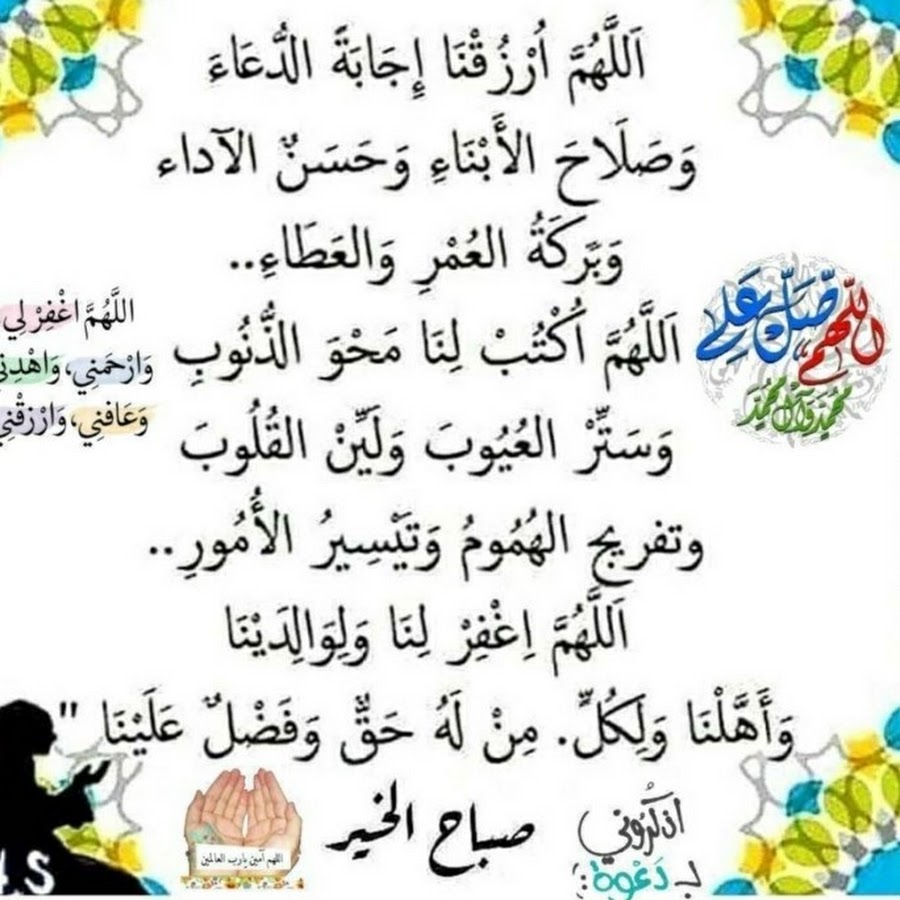 اَللَّهُمَّ اُرْزُقْنَا إِجَابَةً الدُّعَاءَ
وَصَلَاحَ الأَبْنَاءِ وَحَسَنٌ الآداء
وَبَرَكَةُ العُمْرِ وَالعَطَاءِ..
اَللَّهُمَّ اُكْتُبْ لِنَا مَحْوَ الذُّنُوبِ
وَسَتِّرْ العُيُوبَ وَلَيِّنْ القُلُوبَ
وتفريج الهُمُومُ وَتَيْسِيرُ الأُمُورِ..
اَللَّهُمَّ اِغْفِرْ لِنَا وَلِوَالِدَيْنَا
وَأَهَّلْنَا وَلِكُلِّ. مِنْ لَهُ حَقٌّ وَفَضْلٌ عَلَيْنَا "
اللهم صل على
محمد وآل محمد
اللَّهُمَّ اغْفِرْ لِي
وَارْحَمْنِي، وَاهْدِنِي
وَعَافِنِي، وَارْزُقْنِي
اذكروني
بـ دعوة
صباح الخير
اللهم آمين يارب العالمين
S